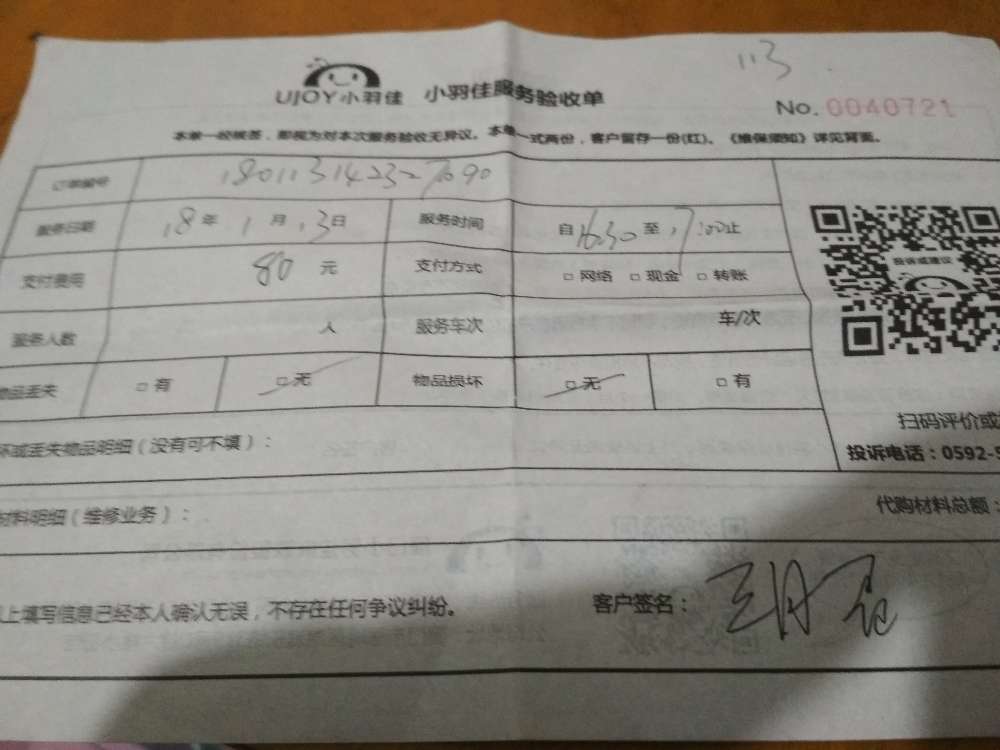 113
UJOY小羽佳 小羽佳服务验收单
No. 0040721
本单一经核签，即视为对本次服务验收无异议。本单一式两份，客户留存一份(红)。《维保须知》详见背面。
订单编号 180113142327690
服务日期 18年 1月 13日 服务时间 自16:30至17:00止
支付费用 80 元 支付方式 □网络 □现金 □转账
投诉或建议
服务人数 人 服务车次 车/次
物品丢失 □有 □无 物品损坏 □无 □有
扫码评价或
坏或丢失物品明细（没有可不填）：
投诉电话：0592-5
材料明细（维修业务）：
代购材料总额：
以上填写信息已经本人确认无误，不存在任何争议纠纷。 客户签名：